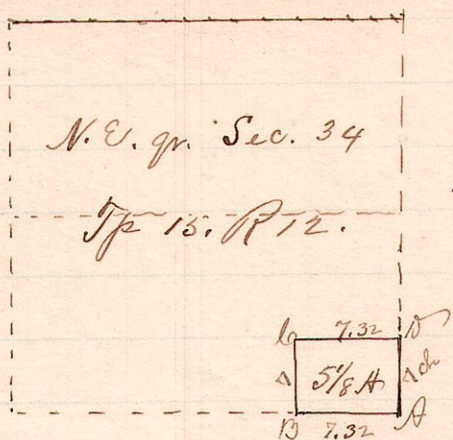 N.E. qr. Sec. 34
Tp 15. R 12.
C 7.32 D
7 5 1/8 A 7 ch
B 7.32 A